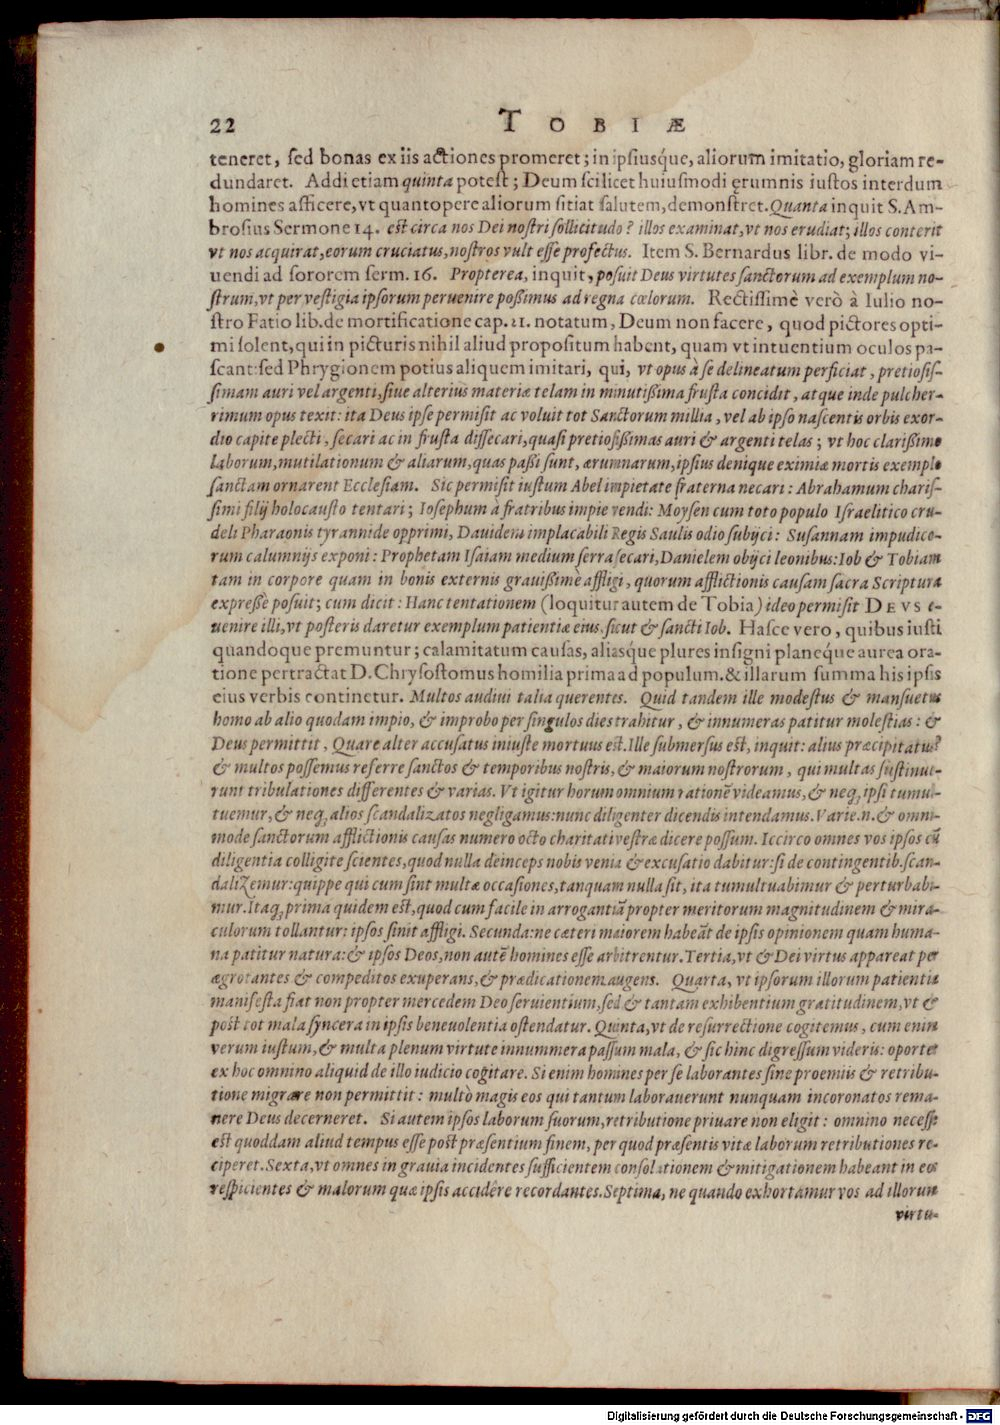 22 TOBIÆ
teneret, sed bonas ex iis actiones promeret; in ipsiusq́ue, aliorum imitatio, gloriam re-
dundaret. Addi etiam quinta potest; Deum scilicet huiusmodi ęrumnis iustos interdum
homines afficere, vt quantopere aliorum sitiat salutem, demonstret. Quanta inquit S. Am-
brosius Sermone 14. est circa nos Dei nostri sollicitudo? illos examinat, vt nos erudiat; illos conterit
vt nos acquirat, eorum cruciatus, nostros vult esse profectus. Item S. Bernardus libr. de modo vi-
uendi ad sororem serm. 16. Propterea, inquit, posuit Deus virtutes sanctorum ad exemplum no-
strum, vt per vestigia ipsorum peruenire possimus ad regna cœlorum. Rectissimè verò à Iulio no-
stro Fatio lib. de mortificatione cap. 11. notatum, Deum non facere, quod pictores opti-
mi solent, qui in picturis nihil aliud propositum habent, quam vt intuentium oculos pa-
scant: sed Phrygionem potius aliquem imitari, qui, vt opus à se delineatum perficiat, pretiosis-
simam auri vel argenti, siue alterius materiæ telam in minutissima frusta concidit, atque inde pulcher-
rimum opus texit: ita Deus ipse permisit ac voluit tot Sanctorum millia, vel ab ipso nascentis orbis exor-
dio capite plecti, secari ac in frusta dissecari, quasi pretiosissimas auri & argenti telas; vt hoc clarissimo
laborum, mutilationum & aliarum, quas passi sunt, ærumnarum, ipsius denique eximiæ mortis exemplo
sanctam ornarent Ecclesiam. Sic permisit iustum Abel impietate fraterna necari: Abrahamum charis-
simi filij holocausto tentari; Iosephum à fratribus impie vendi: Moysen cum toto populo Israelitico cru-
deli Pharaonis tyrannide opprimi, Dauidem implacabili Regis Saulis odio subijci: Susannam impudico-
rum calumnijs exponi: Prophetam Isaiam medium serra secari, Danielem obijci leonibus: Iob & Tobiam
tam in corpore quam in bonis externis grauissimè affligi, quorum afflictionis causam sacra Scriptura
expressè posuit; cum dicit: Hanc tentationem (loquitur autem de Tobia) ideo permisit DEVS e-
uenire illi, vt posteris daretur exemplum patientiæ eius, sicut & sancti Iob. Hasce vero, quibus iusti
quandoque premuntur; calamitatum causas, aliasque plures insigni planeq́ue aurea ora-
tione pertractat D. Chrysostomus homilia prima ad populum. & illarum summa his ipsis
eius verbis continetur. Multos audiui talia querentes. Quid tandem ille modestus & mansuetus
homo ab alio quodam impio, & improbo per singulos dies trahitur, & innumeras patitur molestias: &
Deus permittit, Quare alter accusatus iniuste mortuus est. Ille submersus est, inquit: alius præcipitatus?
& multos possemus referre sanctos & temporibus nostris, & maiorum nostrorum, qui multas sustinue-
runt tribulationes differentes & varias. Vt igitur horum omnium rationē videamus, & neq; ipsi tumul-
tuemur, & neq; alios scandalizatos negligamus: nunc diligenter dicendis intendamus. Varię. n. & omni-
mode sanctorum afflictionis causas numero octo charitati vestræ dicere possum. Iccirco omnes vos ipsos cū
diligentia colligite scientes, quod nulla deinceps nobis venia & excusatio dabitur: si de contingentib. scan-
dalizemur: quippe qui cum sint multæ occasiones, tanquam nulla sit, ita tumultuabimur & perturbabi-
mur. Itaq; prima quidem est, quod cum facile in arrogantiā propter meritorum magnitudinem & mira-
culorum tollantur: ipsos sinit affligi. Secunda: ne cæteri maiorem habeāt de ipsis opinionem quam huma-
na patitur natura: & ipsos Deos, non autē homines esse arbitrentur. Tertia, vt & Dei virtus appareat per
ægrotantes & compeditos exuperans, & prædicationem augens. Quarta, vt ipsorum illorum patientia
manifesta fiat non propter mercedem Deo seruientium, sed & tantam exhibentium gratitudinem, vt &
post tot mala syncera in ipsis beneuolentia ostendatur. Quinta, vt de resurrectione cogitemus, cum enim
verum iustum, & multa plenum virtute innummera passum mala, & sic hinc digressum videris: oportet
ex hoc omnino aliquid de illo iudicio cogitare. Si enim homines per se laborantes sine proemiis & retribu-
tione migrare non permittit: multò magis eos qui tantum laborauerunt nunquam incoronatos rema-
nere Deus decerneret. Si autem ipsos laborum suorum, retributione priuare non eligit: omnino necesse
est quoddam aliud tempus esse post præsentium finem, per quod præsentis vitæ laborum retributiones re-
ciperet. Sexta, vt omnes in grauia incidentes sufficientem consolationem & mitigationem habeant in eos
respicientes & malorum quæ ipsis accidêre recordantes. Septima, ne quando exhortamur vos ad illorum
virtu-
Digitalisierung gefördert durch die Deutsche Forschungsgemeinschaft - DFG